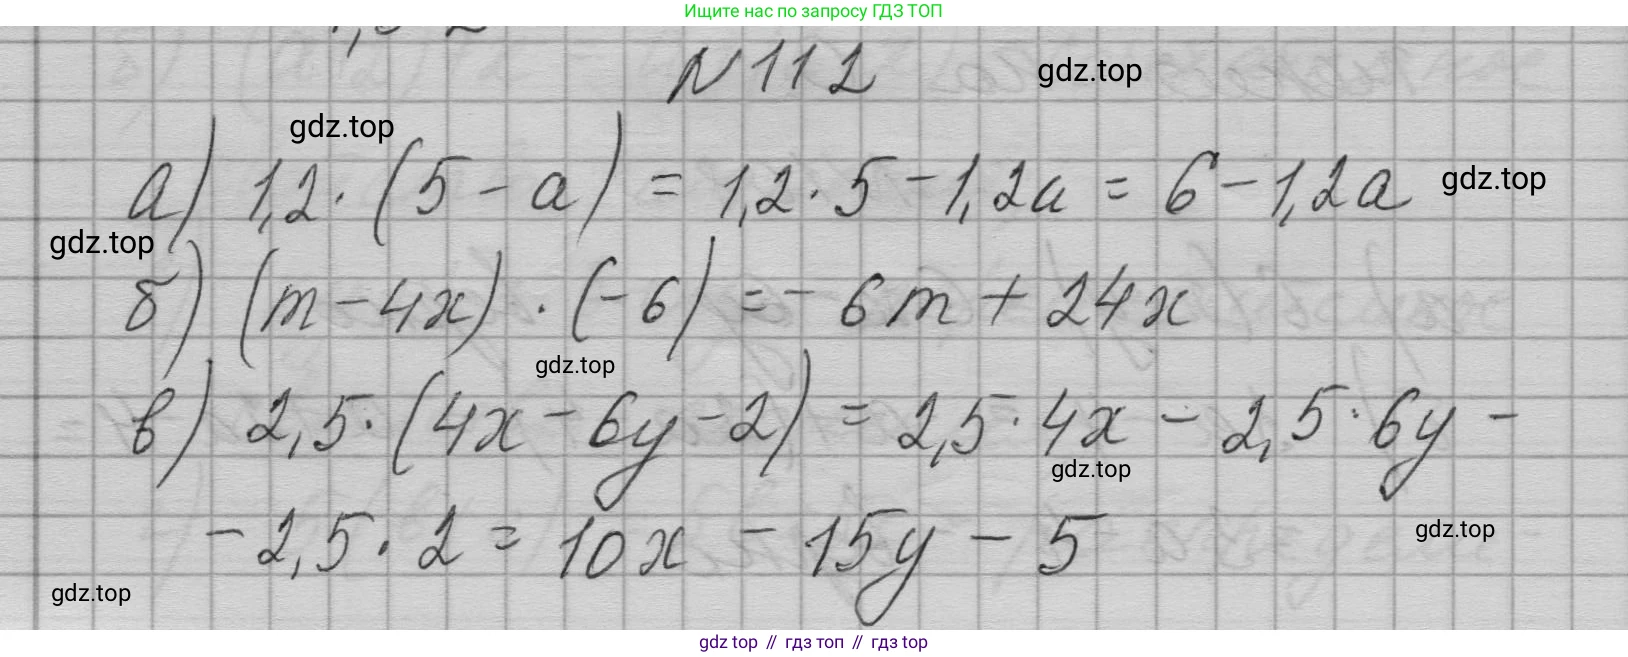 Ищите нас по запросу ГДЗ ТОП
N112
gdz.top
gdz.top
а) 1,2·(5-a) = 1,2·5-1,2a = 6-1,2a
gdz.top
gdz.top
б) (m-4x)·(-6) = -6m+24x
gdz.top
в) 2,5·(4x-6y-2) = 2,5·4x-2,5·6y-
gdz.top
-2,5·2 = 10x-15y-5
gdz.top
gdz.top
gdz top // гдз топ // гдз top